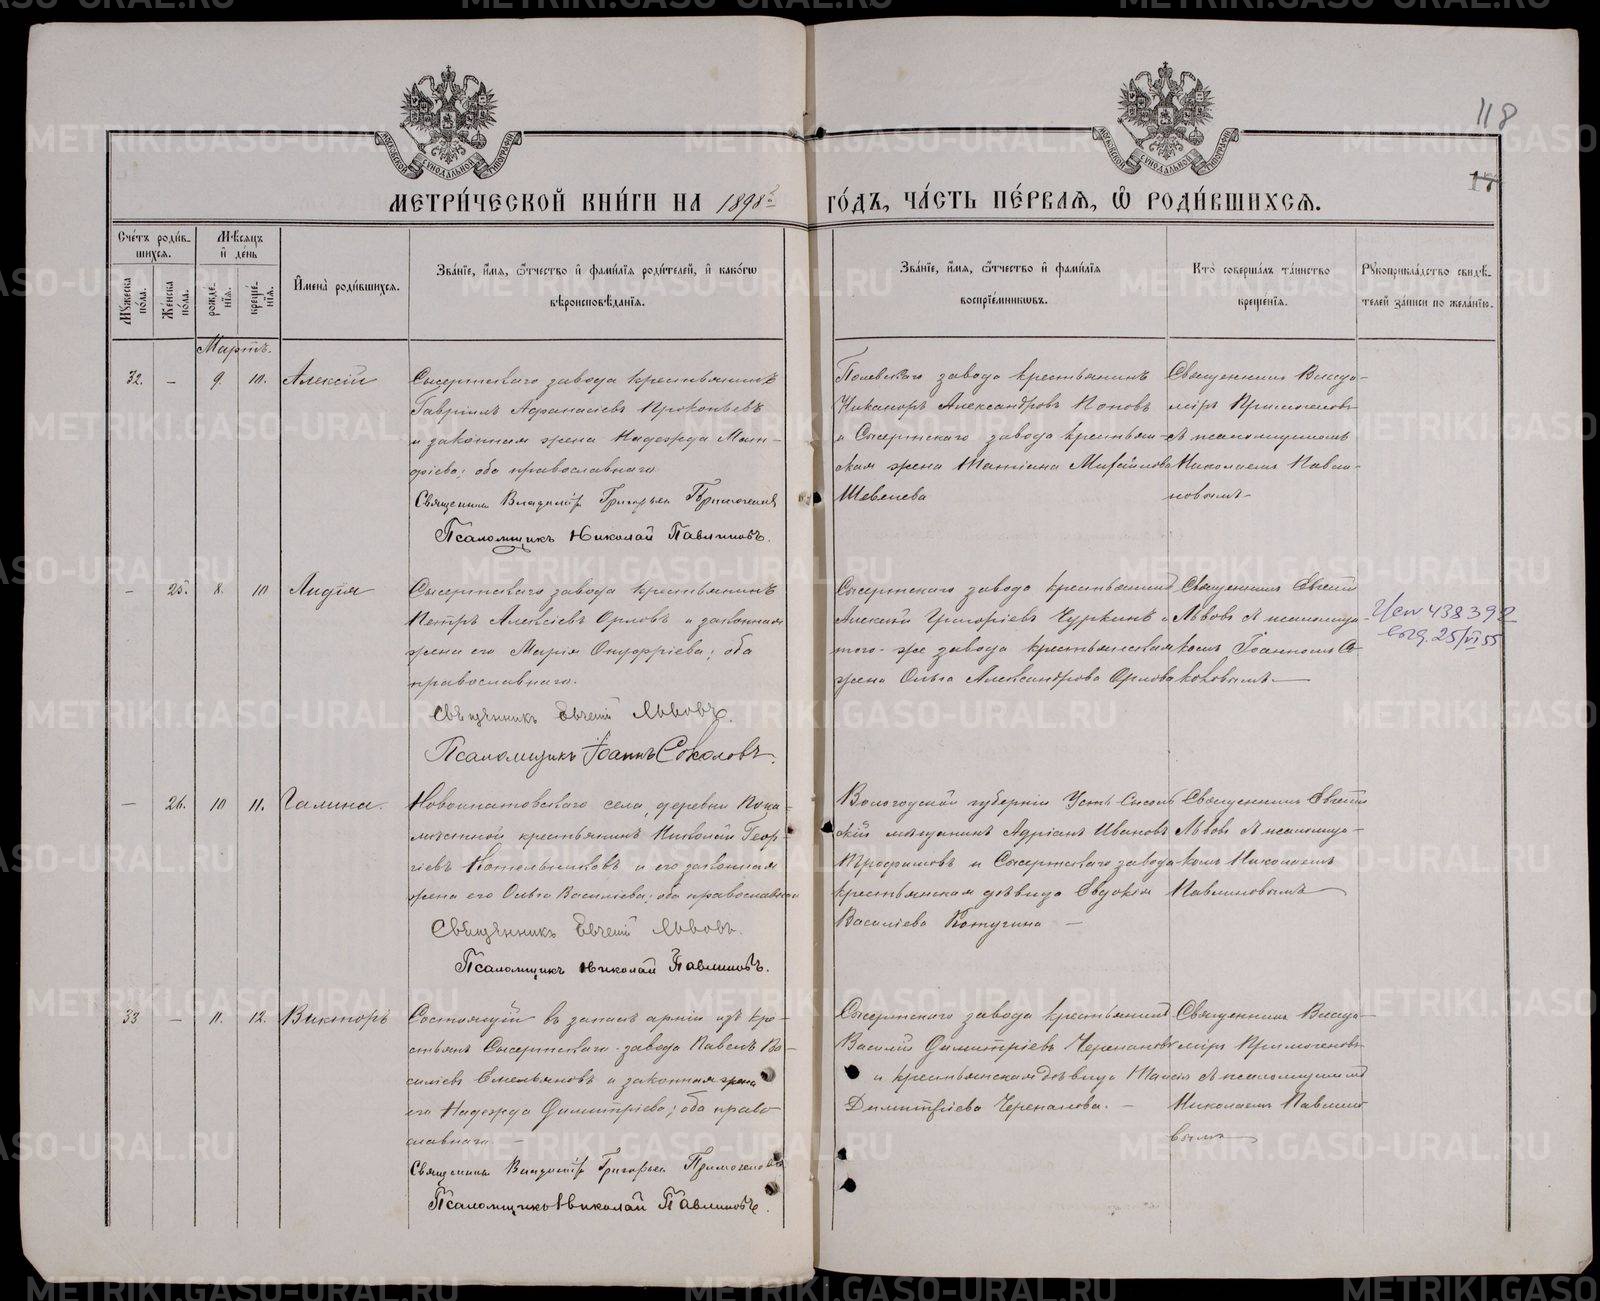 118
17
МЕТРИ́ЧЕСКОЙ КНИ́ГИ НА 1898й ГО́ДЪ, ЧА́СТЬ ПЕ́РВАЯ, Ѿ РОДИ́ВШИХСЯ.
Сче́тъ роди́в-
шихся.
Мужеска по́ла.
Же́нска по́ла.
Мѣ́сяцъ
и҆ де́нь
рожде́нїя.
креще́нїя.
И҆мена̀ роди́вшихся.
Зва́нїе, и҆́мя, ѻ҆́тчество и҆ фами́лїя роди́телей, и҆ како́гѡ
вѣроисповѣ́данїя.
Зва́нїе, и҆́мя, ѻ҆́тчество и҆ фами́лїя
воспрїе́мниковъ.
Кто̀ соверша́лъ та́инство
креще́нїя.
Рукоприкла́дство свидѣ́-
телей за́писи по жела́нїю.
Мартъ.
32. – 9. 10. Алексій
Сысертскаго завода крестьянинъ
Гавріилъ Афанасіевъ Прокопьевъ
и законная жена Надежда Мат-
фіева; оба православнаго
Священникъ Владиміръ Григорьев Примогеновъ
Псаломщикъ Николай Павлиновъ.
Полевскаго завода крестьянинъ
Никаноръ Александровъ Поповъ
и Сысертскаго завода крестьян-
ская жена Татіана Михайлова
Шевелева
Священникъ Влади-
міръ Примогеновъ
съ псаломщикомъ
Николаемъ Павли-
новымъ
– 25. 8. 10 Лидія
Сысертскаго завода крестьянинъ
Петръ Алексіевъ Орловъ и законная
жена его Марія Онуфріева; оба
православнаго.
Священникъ Евгеній Львовъ.
Псаломщикъ Іоаннъ Соколовъ.
Сысертскаго завода крестьянинъ
Алексій Григоріевъ Чуркинъ и
того-же завода крестьянская
жена Ольга Александрова Орлова
Священникъ Евгеній
Львовъ съ псаломщи-
комъ Іоанномъ Со-
коловымъ
438392
выд. 25/VI 55
– 26. 10 11. Галина.
Новоипатовскаго села, деревни Кока-
мѣстной крестьянинъ Николай Геор-
гіевъ Котельниковъ и его законная
жена его Ольга Василіева; оба православнаго
Священникъ Евгеній Львовъ.
Псаломщикъ Николай Павлиновъ.
Вологодской губерніи Усть-Сысоль-
скій мѣщанинъ Адріанъ Ивановъ
Трофимовъ и Сысертскаго завода
крестьянская дѣвица Евдокія
Василіева Кожугина –
Священникъ Евгеній
Львовъ съ псаломщи-
комъ Николаемъ
Павлиновымъ
33 – 11. 12. Викторъ
Состоящій въ запасѣ арміи изъ кре-
стьянъ Сысертскаго завода Павелъ Ва-
силіевъ Емельяновъ и законная жена
его Надежда Димитріева; оба право-
славнаго –
Священникъ Владиміръ Григорьев Примогеновъ
Псаломщикъ Николай Павлиновъ.
Сысертскаго завода крестьянинъ
Василій Димитріевъ Черепановъ
и крестьянская дѣвица Таисія
Димитріева Черепанова. –
Священникъ Влади-
міръ Примогеновъ
съ псаломщикомъ
Николаемъ Павлино-
вымъ
METRIKI.GASO-URAL.RU